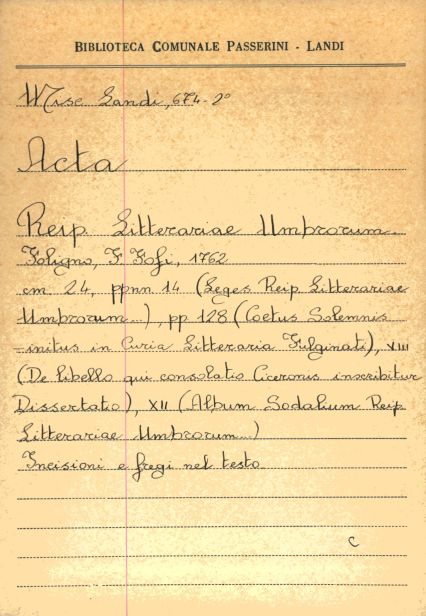 BIBLIOTECA COMUNALE PASSERINI - LANDI
Misc. Landi, 674-2º
Acta
Reip. Litterariae Umbrorum.
Foligno, F. Fofi, 1762
cm. 24, ppnn 14 (Leges Reip Litterariae
Umbrorum...), pp 128 (Coetus Solemnis
initus in Curia Litteraria Fulginati), XIII
(De libello qui consolatio Ciceronis inscribitur
Dissertatio), XII (Album Sodalium Reip
Litterariae Umbrorum...)
Incisioni e fregi nel testo
C